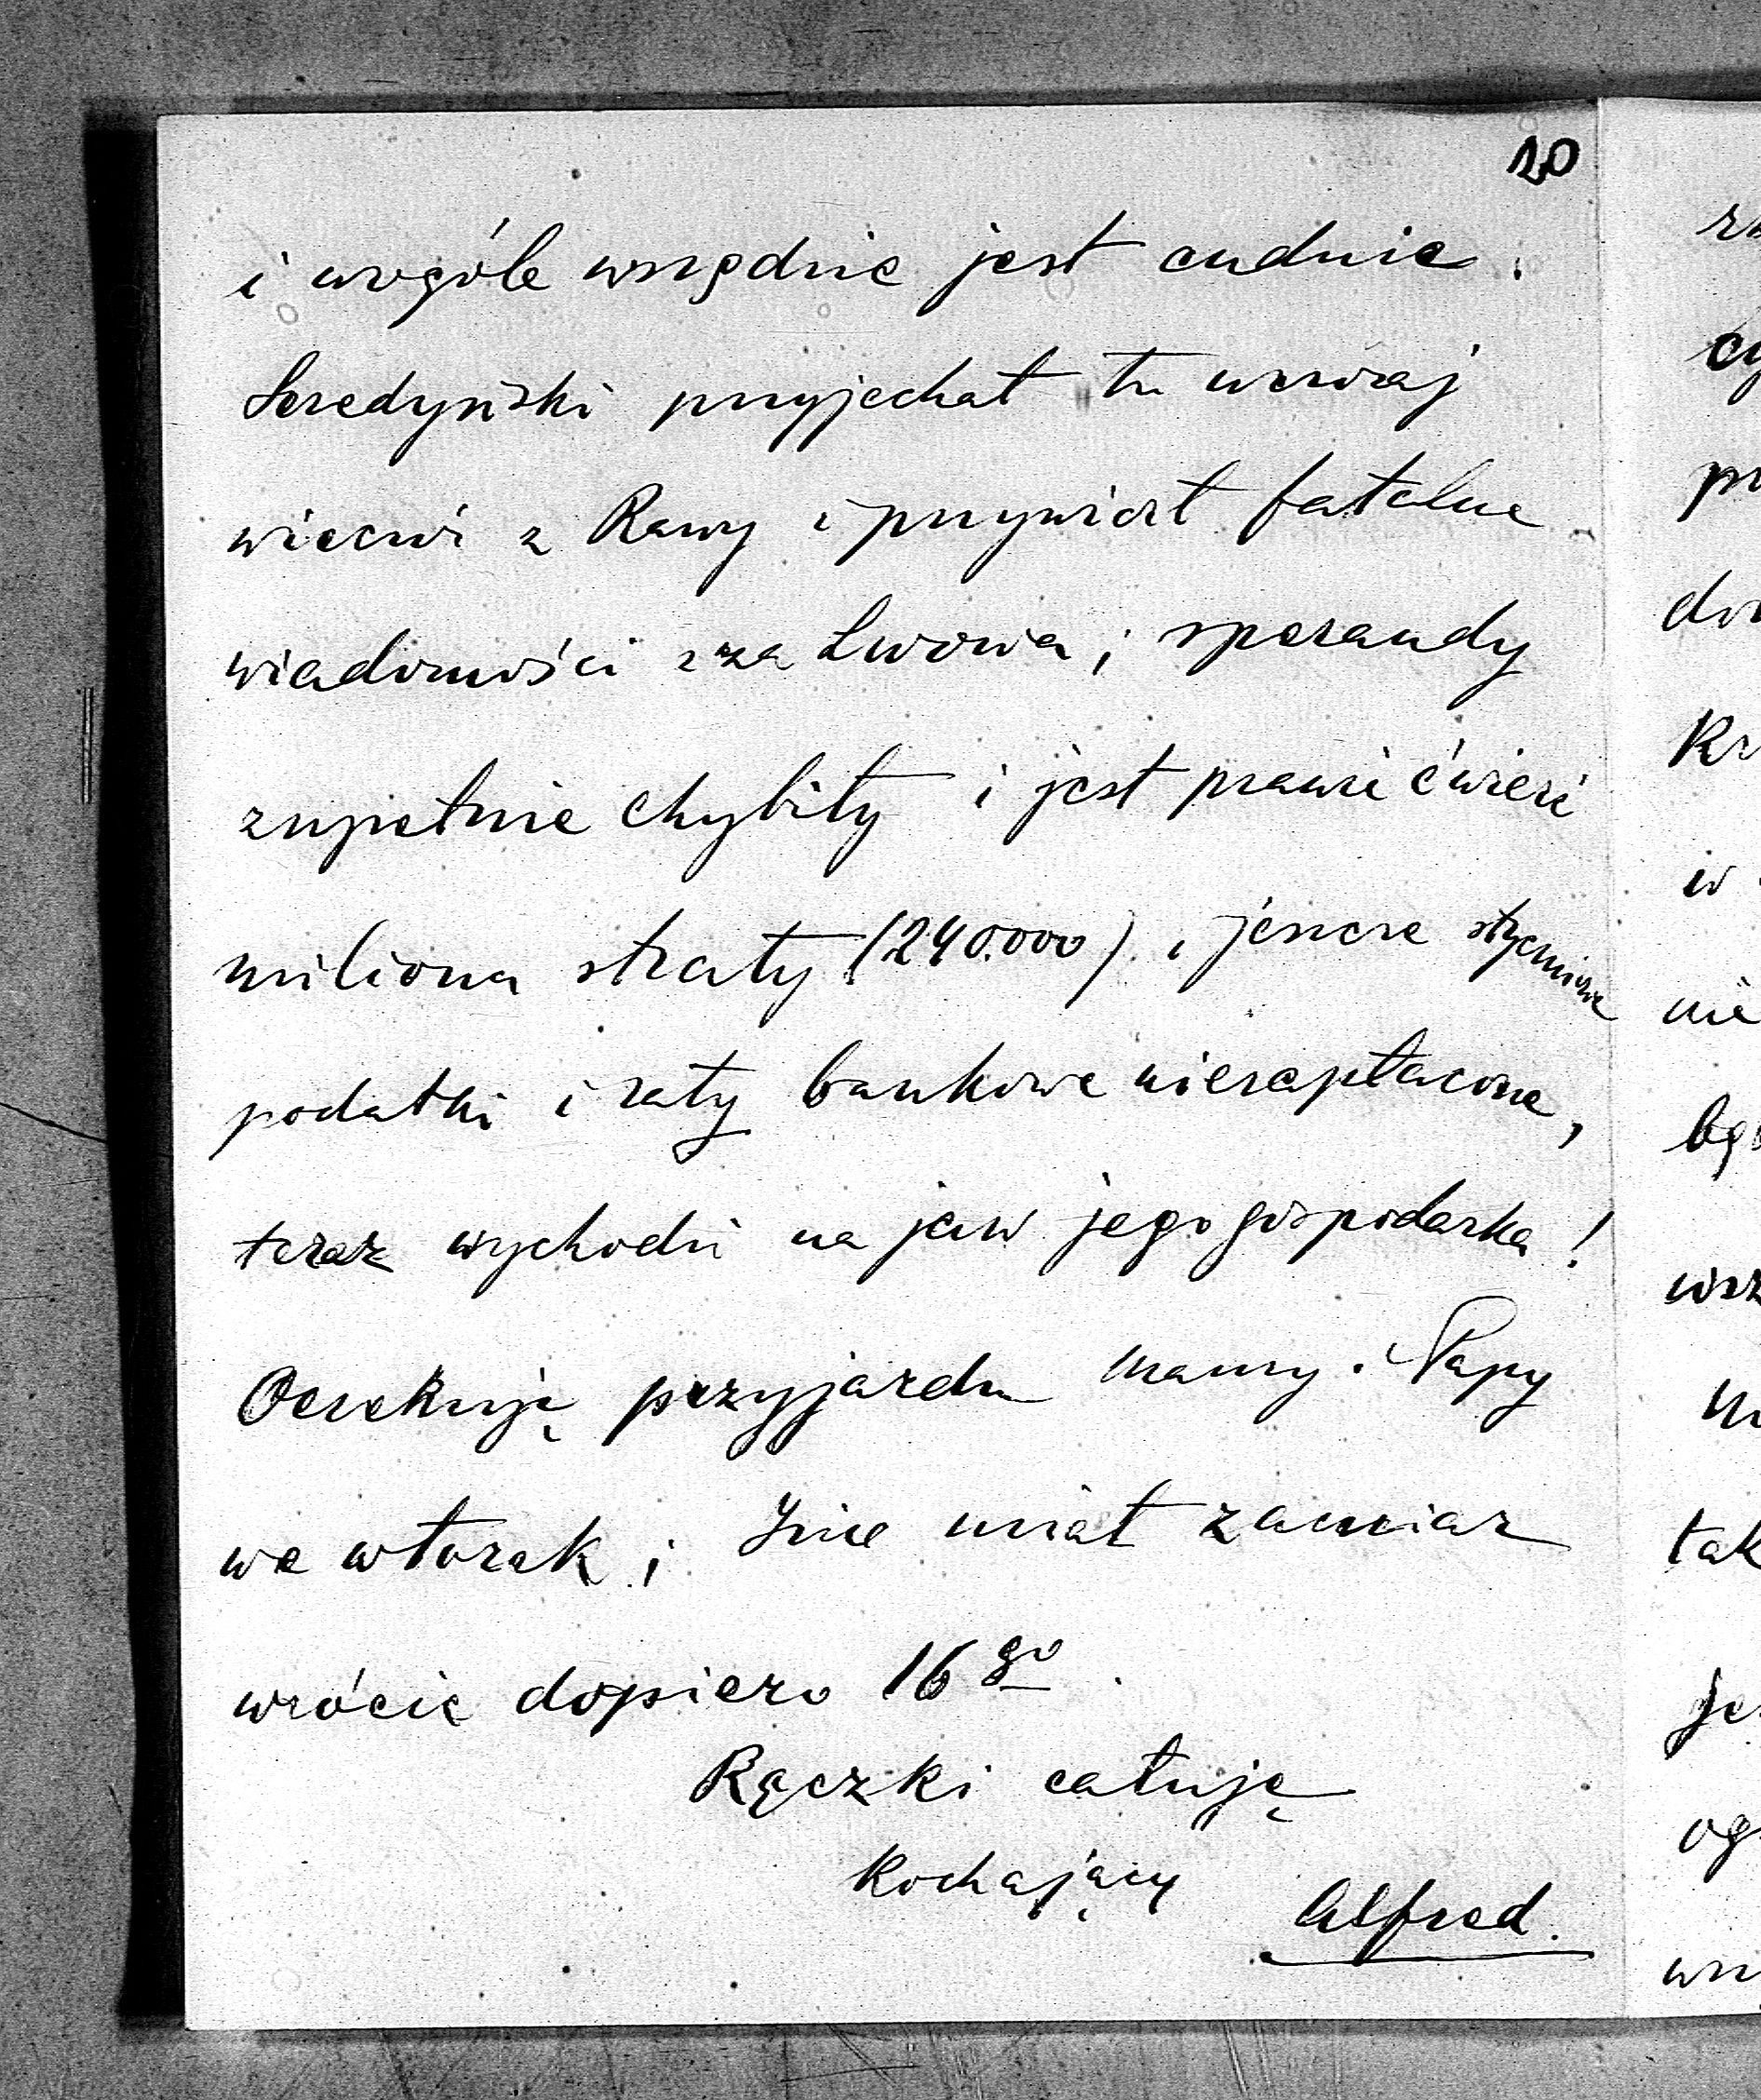 20
i wogóle wszędzie jest cudnie.
Seredyński przyjechał tu wczoraj
wieczór z Rawy i przywiózł fatalne
wiadomości z za Lwowa; sperandy
zupełnie chybiły i jest prawie ćwierć
miliona straty (240.000) i jeszcze styczniowe
podatki i raty bankowe niezapłacone,
teraz wychodzi na jaw jego gospodarka!
Oczekuję przyjazdu Mamy. Papy
we wtorek; miał zamiar
wrócić dopiero 16go.
Rączki całuję
Kochający
Alfred.